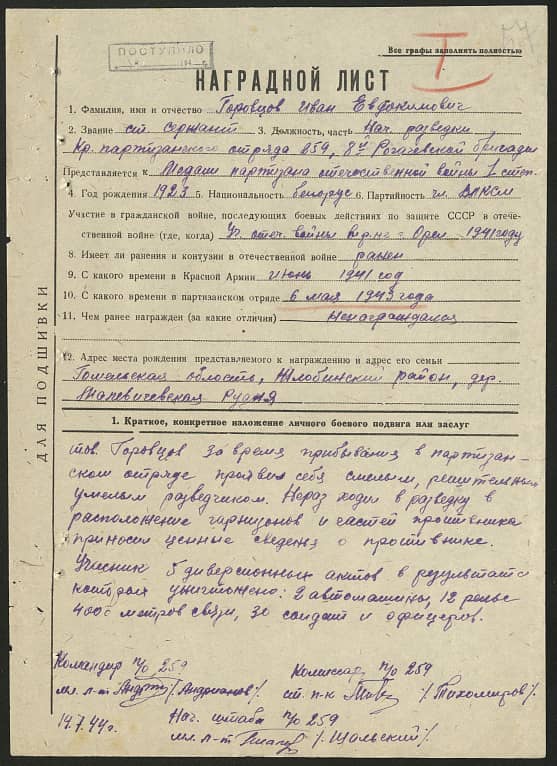 57
ПОСТУПИЛО
I
Все графы заполнять полностью
НАГРАДНОЙ ЛИСТ
1. Фамилия, имя и отчество Горовцов Иван Евдокимович
2. Звание ст. сержант 3. Должность, часть Нач. разведки
Кр. партизанского отряда 259, 8й Рогачевской бригады
Представляется к Медали партизана отечественной войны 1 степ.
4. Год рождения 1923 5. Национальность белорус 6. Партийность чл. ВЛКСМ
Участие в гражданской войне, последующих боевых действиях по защите СССР в отече-
ственной войне (где, когда) Уч. отеч. войны в р-не г. Орел 1941 году
8. Имеет ли ранения и контузии в отечественной войне ранен
9. С какого времени в Красной Армии июнь 1941 год
10. С какого времени в партизанском отряде 6 мая 1943 года
11. Чем ранее награжден (за какие отличия) Ненаграждался
12. Адрес места рождения представляемого к награждению и адрес его семьи
Гомельская область, Жлобинский район, дер.
Малевичевская Рудня
ДЛЯ ПОДШИВКИ
1. Краткое, конкретное изложение личного боевого подвига или заслуг
тов. Горовцов за время прибывания в партизан-
ском отряде проявил себя смелым, решительным
умелым разведчиком. Нераз ходил в разведку в
расположение гарнизонов и частей противника
приносил ценные сведенья о противнике.
Учасник 5 диверсионных актов в результати
которых уничтожено: 2 автомашины, 12 рельс
400 метров связи, 30 солдат и офицеров.
Командир п/о 259
мл. л-т /Андрианов/.
Комиссар п/о 259
ст. п-к /Тихомиров/.
19.7.44г.
Нач. штаба п/о 259
мл. л-т /Щольский/.